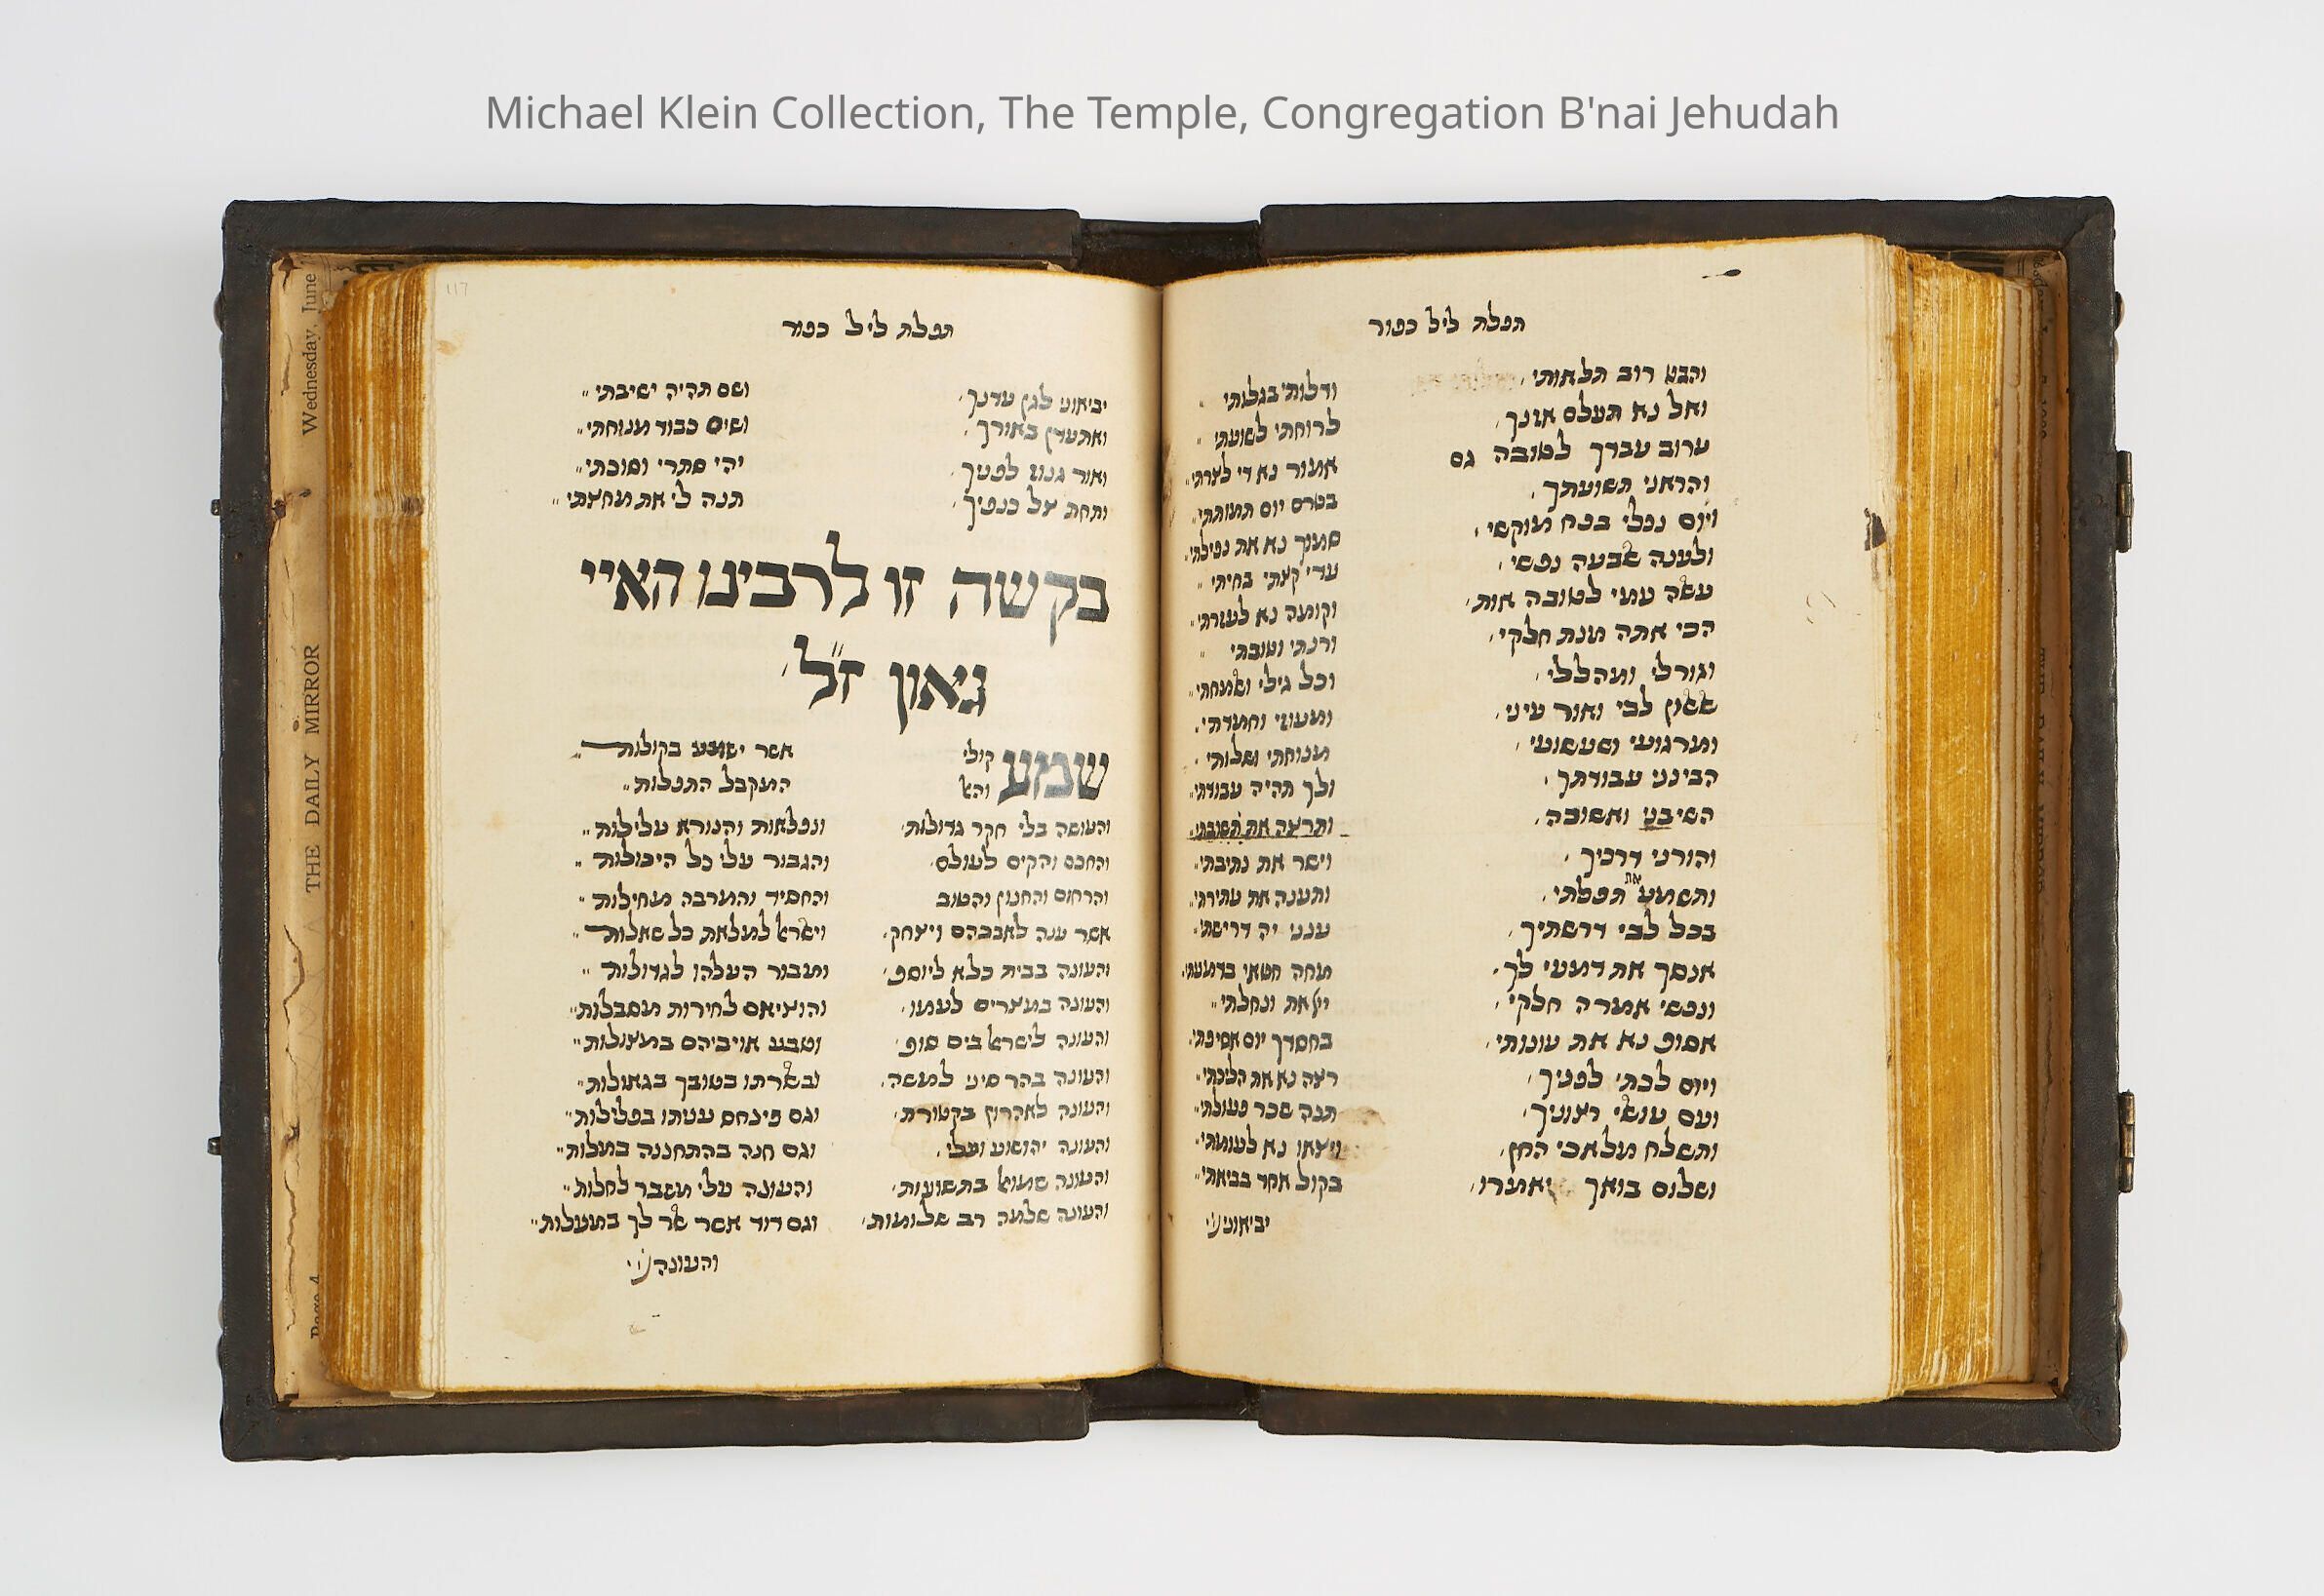 Michael Klein Collection, The Temple, Congregation B'nai Jehudah
תפלת ליל כפור
והבט רוב תלאותי, ודלותי בגלותי
ואל נא תעלם אזנך, לרוחתי לשועתי
ערוב עבדך לטובה גם אמור נא די לצרתי
והראני תשועתך, בטרם יום תמותתי
ויום נפלי בפח מוקשי, סמוך נא את נפילתי
ולענה שבעה נפשי, עדי קצתי בחיתי
עשה עמי לטובה אות, וקומה נא לעזרתי
הכי אתה מנת חלקי, ורנתי וטובתי
וגורלי ומהללי, וכל גילי ושמחתי
ששון לבי ואור עיני, ומעוזי וחמדתי
ומרגועי ושעשועי, מנוחתי ושלותי
הבינני עבודתך, ולך תהיה עבודתי
השיבני ואשובה, ותרצה את תשובתי
והורני דרכיך, וישר את נתיבתי
ותשמע את תפלתי, ותענה את עתירתי
בכל לבי דרשתיך, ענני יה דרישתי
אנסך את דמעי לך, מחה חטאי בדמעתי
ונפשי אמרה חלקי, את ונחלתי
אסוף נא את עונותי, בחסדך יום אסיפתי
ויום לכתי לפניך, רצה נא את הליכתי
ועם עושי רצונך, תנה שכר פעולתי
ותשלח מלאכי החן, ויצאו נא לעומתי
ושלום בואך יאמרו, בקול אחד בביאתי
יביאוני
117
תפלת ליל כפור
יביאוני לגן עדנך, ושם תהיה ישיבתי
ואתעדן באורך, ושים כבוד מנוחתי
ואור גנוז לפניך, יהי סתרי וסוכתי
ותחת צל כנפיך, תנה לי את מחצתי
בקשה זו לרבינו האיי
גאון ז"ל
שמע קולי אשר ישמע בקולות
והאל המקבל התפלות
והעושה בלי חקר גדולות, ונפלאות והנורא עלילות
והחכם והקים לעולם, והגבור עלי כל היכולות
והרחום והחנון והטוב והחסיד והמרבה מחילות
אשר ענה לאברהם ויצחק, וישראל למלאת כל שאלות
והעונה בבית כלא ליוסף, ומבור העלהו לגדולות
והעונה במצרים לעמו, והוציאם לחירות מסבלות
והעונה לישראל בים סוף, וטבע אויביהם במצולות
והעונה בהר סיני למשה, ובשרתו בטובך בגאולות
והעונה לאהרון בקטורת, וגם פינחס עניתו בפלילות
והעונה יהושוע ועלי, וגם חנה בהתחננה במלות
והעונה שמואל בתשועות, והעונה עלי משבר לחלות
והעונה שלמה רב שלומות, וגם דוד אשר שר לך במעלות
והעונה
Wednesday, June
THE DAILY MIRROR
Page 4